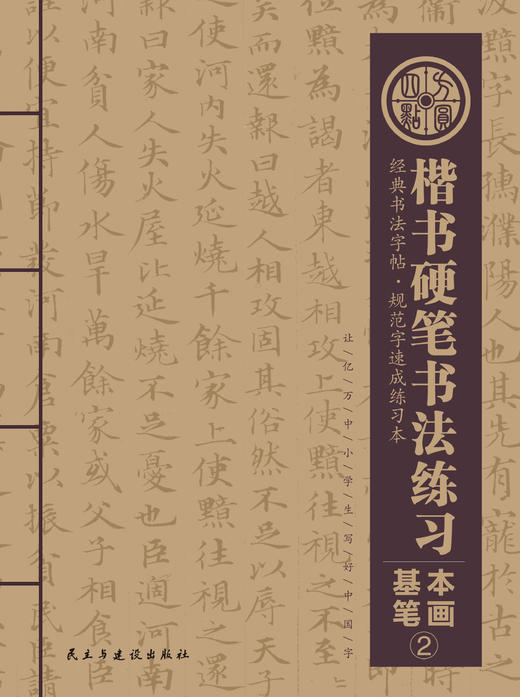 方圓
四點
楷书硬笔书法练习
经典书法字帖·规范字速成练习本
基本
笔画
②
让/亿/万/中/小/学/生/写/好/中/国/字
民主与建设出版社
黯字長孺濮陽人也其先有寵於古之
位黯為謁者東越相攻上使黯往視之不至
吳而還報曰越人相攻固其俗然不足以辱天子
使河内失火延燒千餘家上使黯往視之還
曰家人失火屋比延燒不足憂也臣適河南
河南貧人傷水旱萬餘家或父子相食臣
以便宜持節發河南倉粟以振貧民臣請